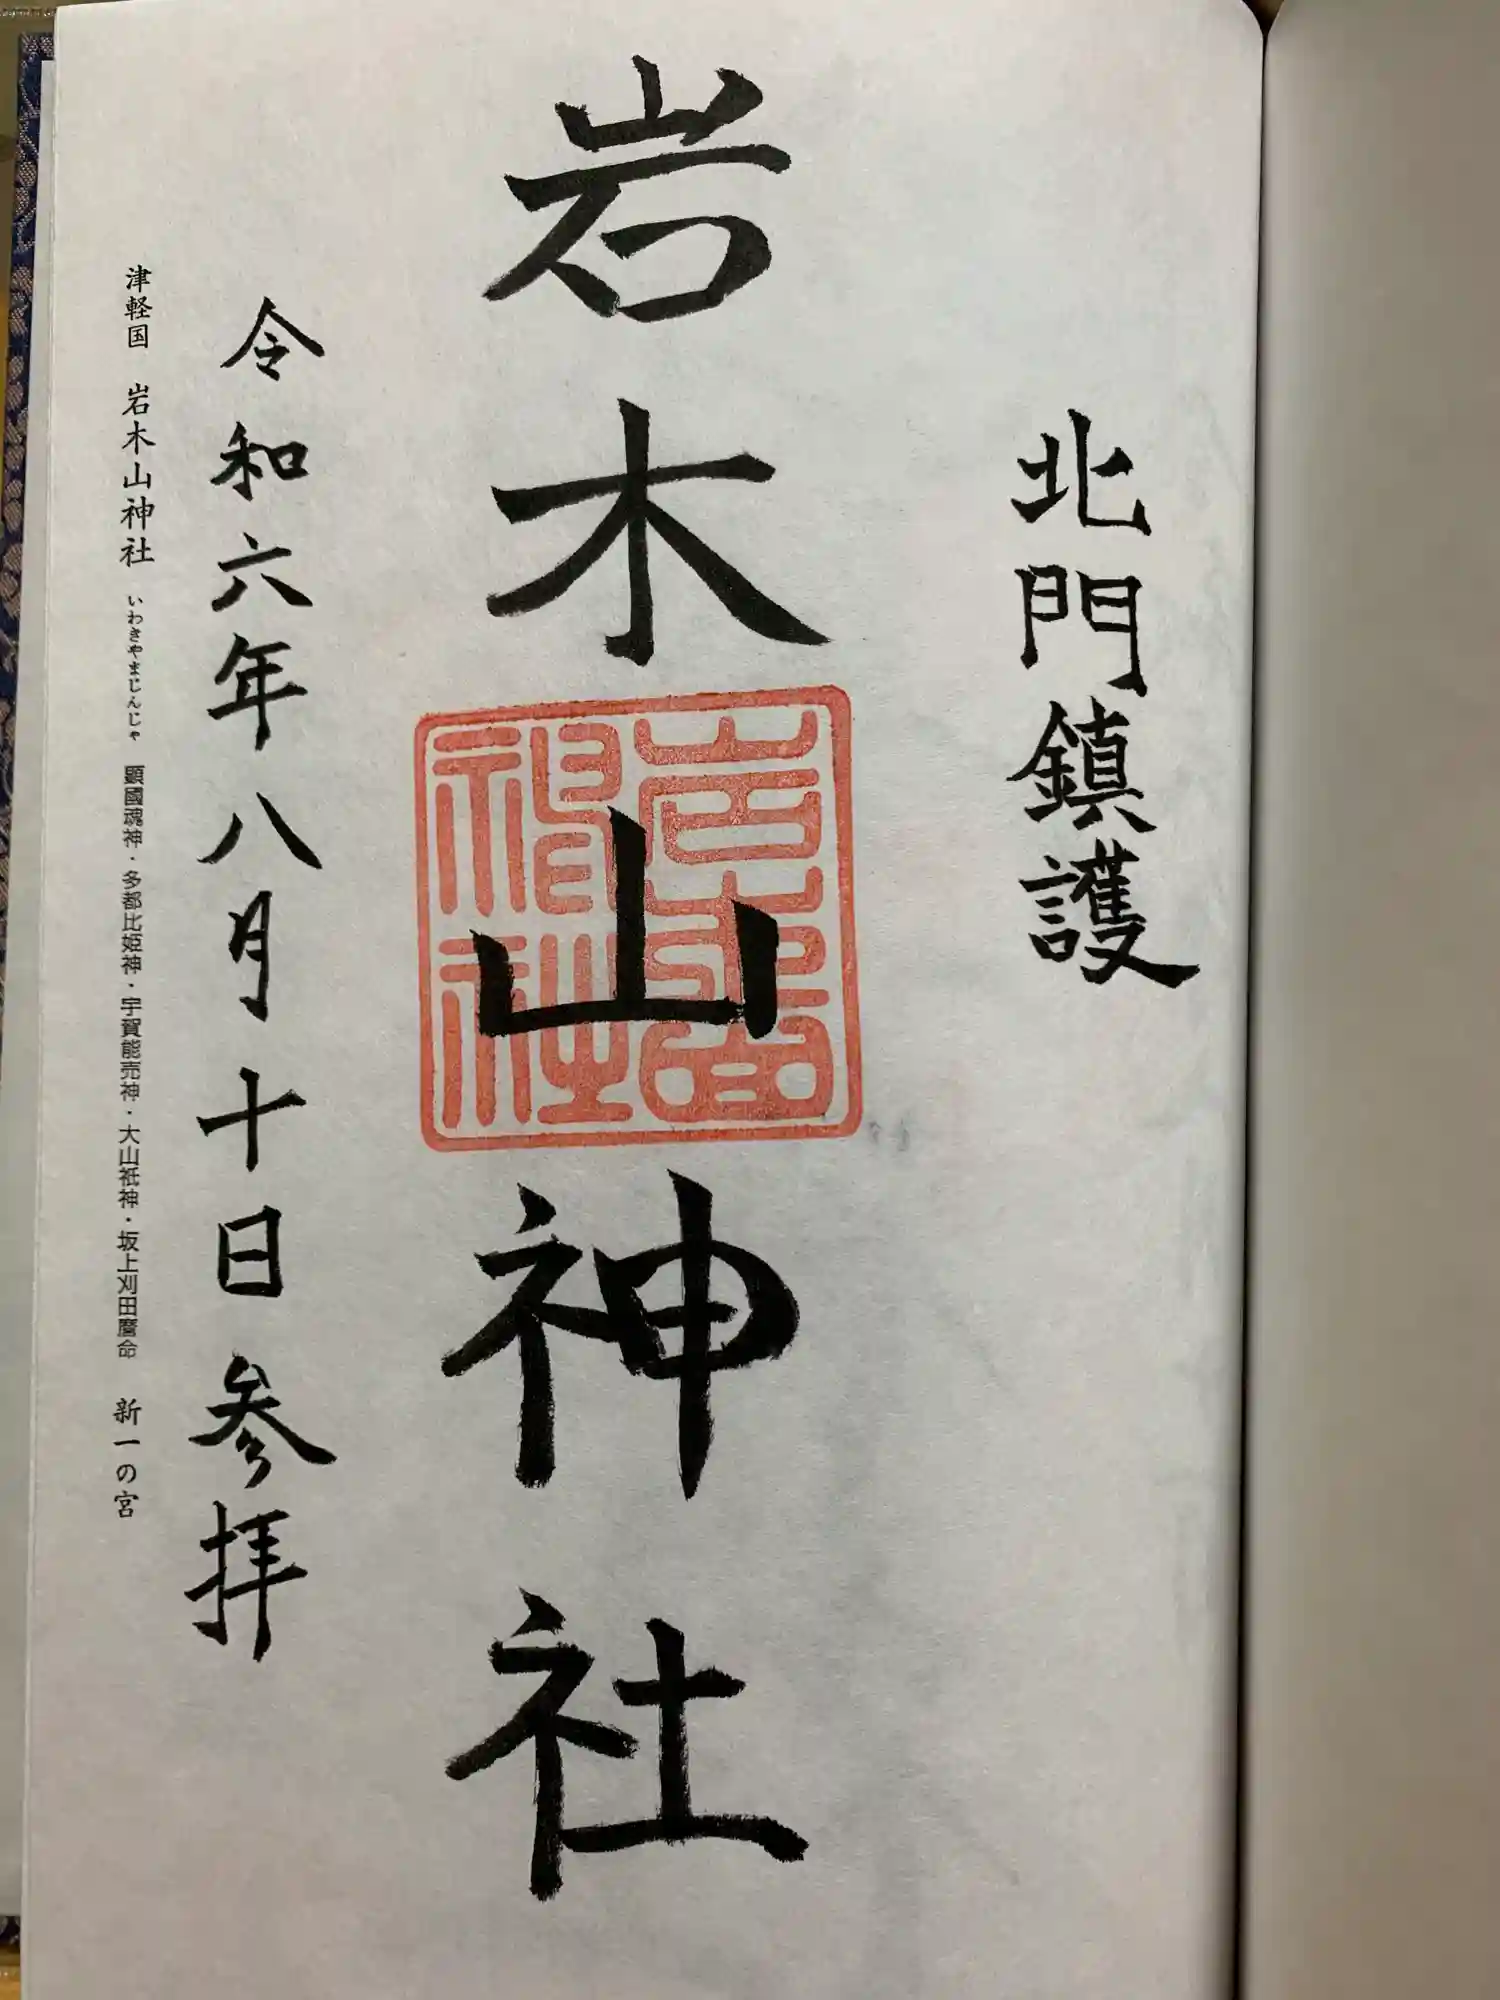 北門鎮護
岩木山神社
岩木山神社
令和六年八月十日参拝
津軽国 岩木山神社 いわきやまじんじゃ 顕國魂神・多都比姫神・宇賀能売神・大山祇神・坂上刈田麿命 新一の宮